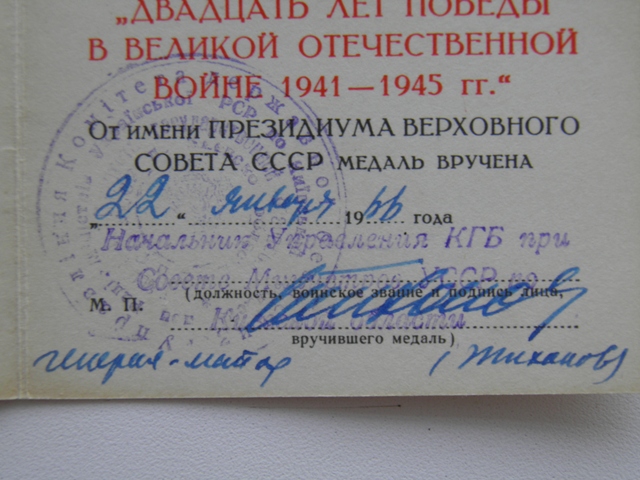 „ДВАДЦАТЬ ЛЕТ ПОБЕДЫ
В ВЕЛИКОЙ ОТЕЧЕСТВЕННОЙ
ВОЙНЕ 1941—1945 гг.“
От имени ПРЕЗИДИУМА ВЕРХОВНОГО
СОВЕТА СССР МЕДАЛЬ ВРУЧЕНА
„22“ января 1966 года
Начальник Управления КГБ при
Совете Министров УССР по
(должность, воинское звание и подпись лица,
М. П.
области
вручившего медаль)
генерал-майор (Тихонов)